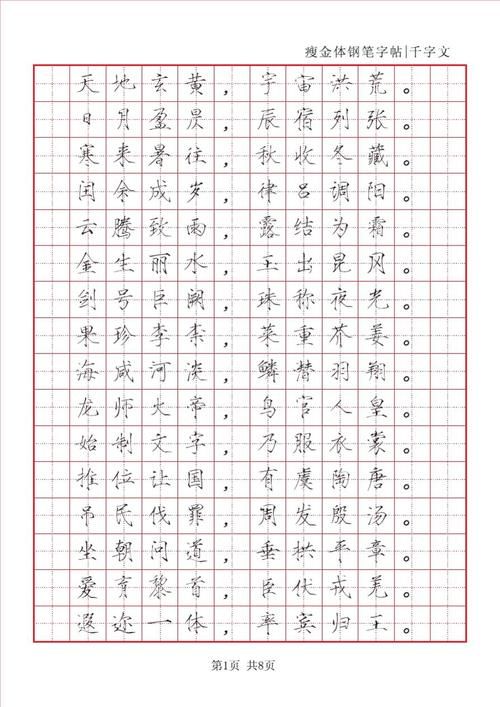 瘦金体钢笔字帖|千字文
天地玄黄，宇宙洪荒。
日月盈昃，辰宿列张。
寒来暑往，秋收冬藏。
闰余成岁，律吕调阳。
云腾致雨，露结为霜。
金生丽水，玉出昆冈。
剑号巨阙，珠称夜光。
果珍李柰，菜重芥姜。
海咸河淡，鳞潜羽翔。
龙师火帝，鸟官人皇。
始制文字，乃服衣裳。
推位让国，有虞陶唐。
吊民伐罪，周发殷汤。
坐朝问道，垂拱平章。
爱育黎首，臣伏戎羌。
遐迩一体，率宾归王。
第1页 共8页